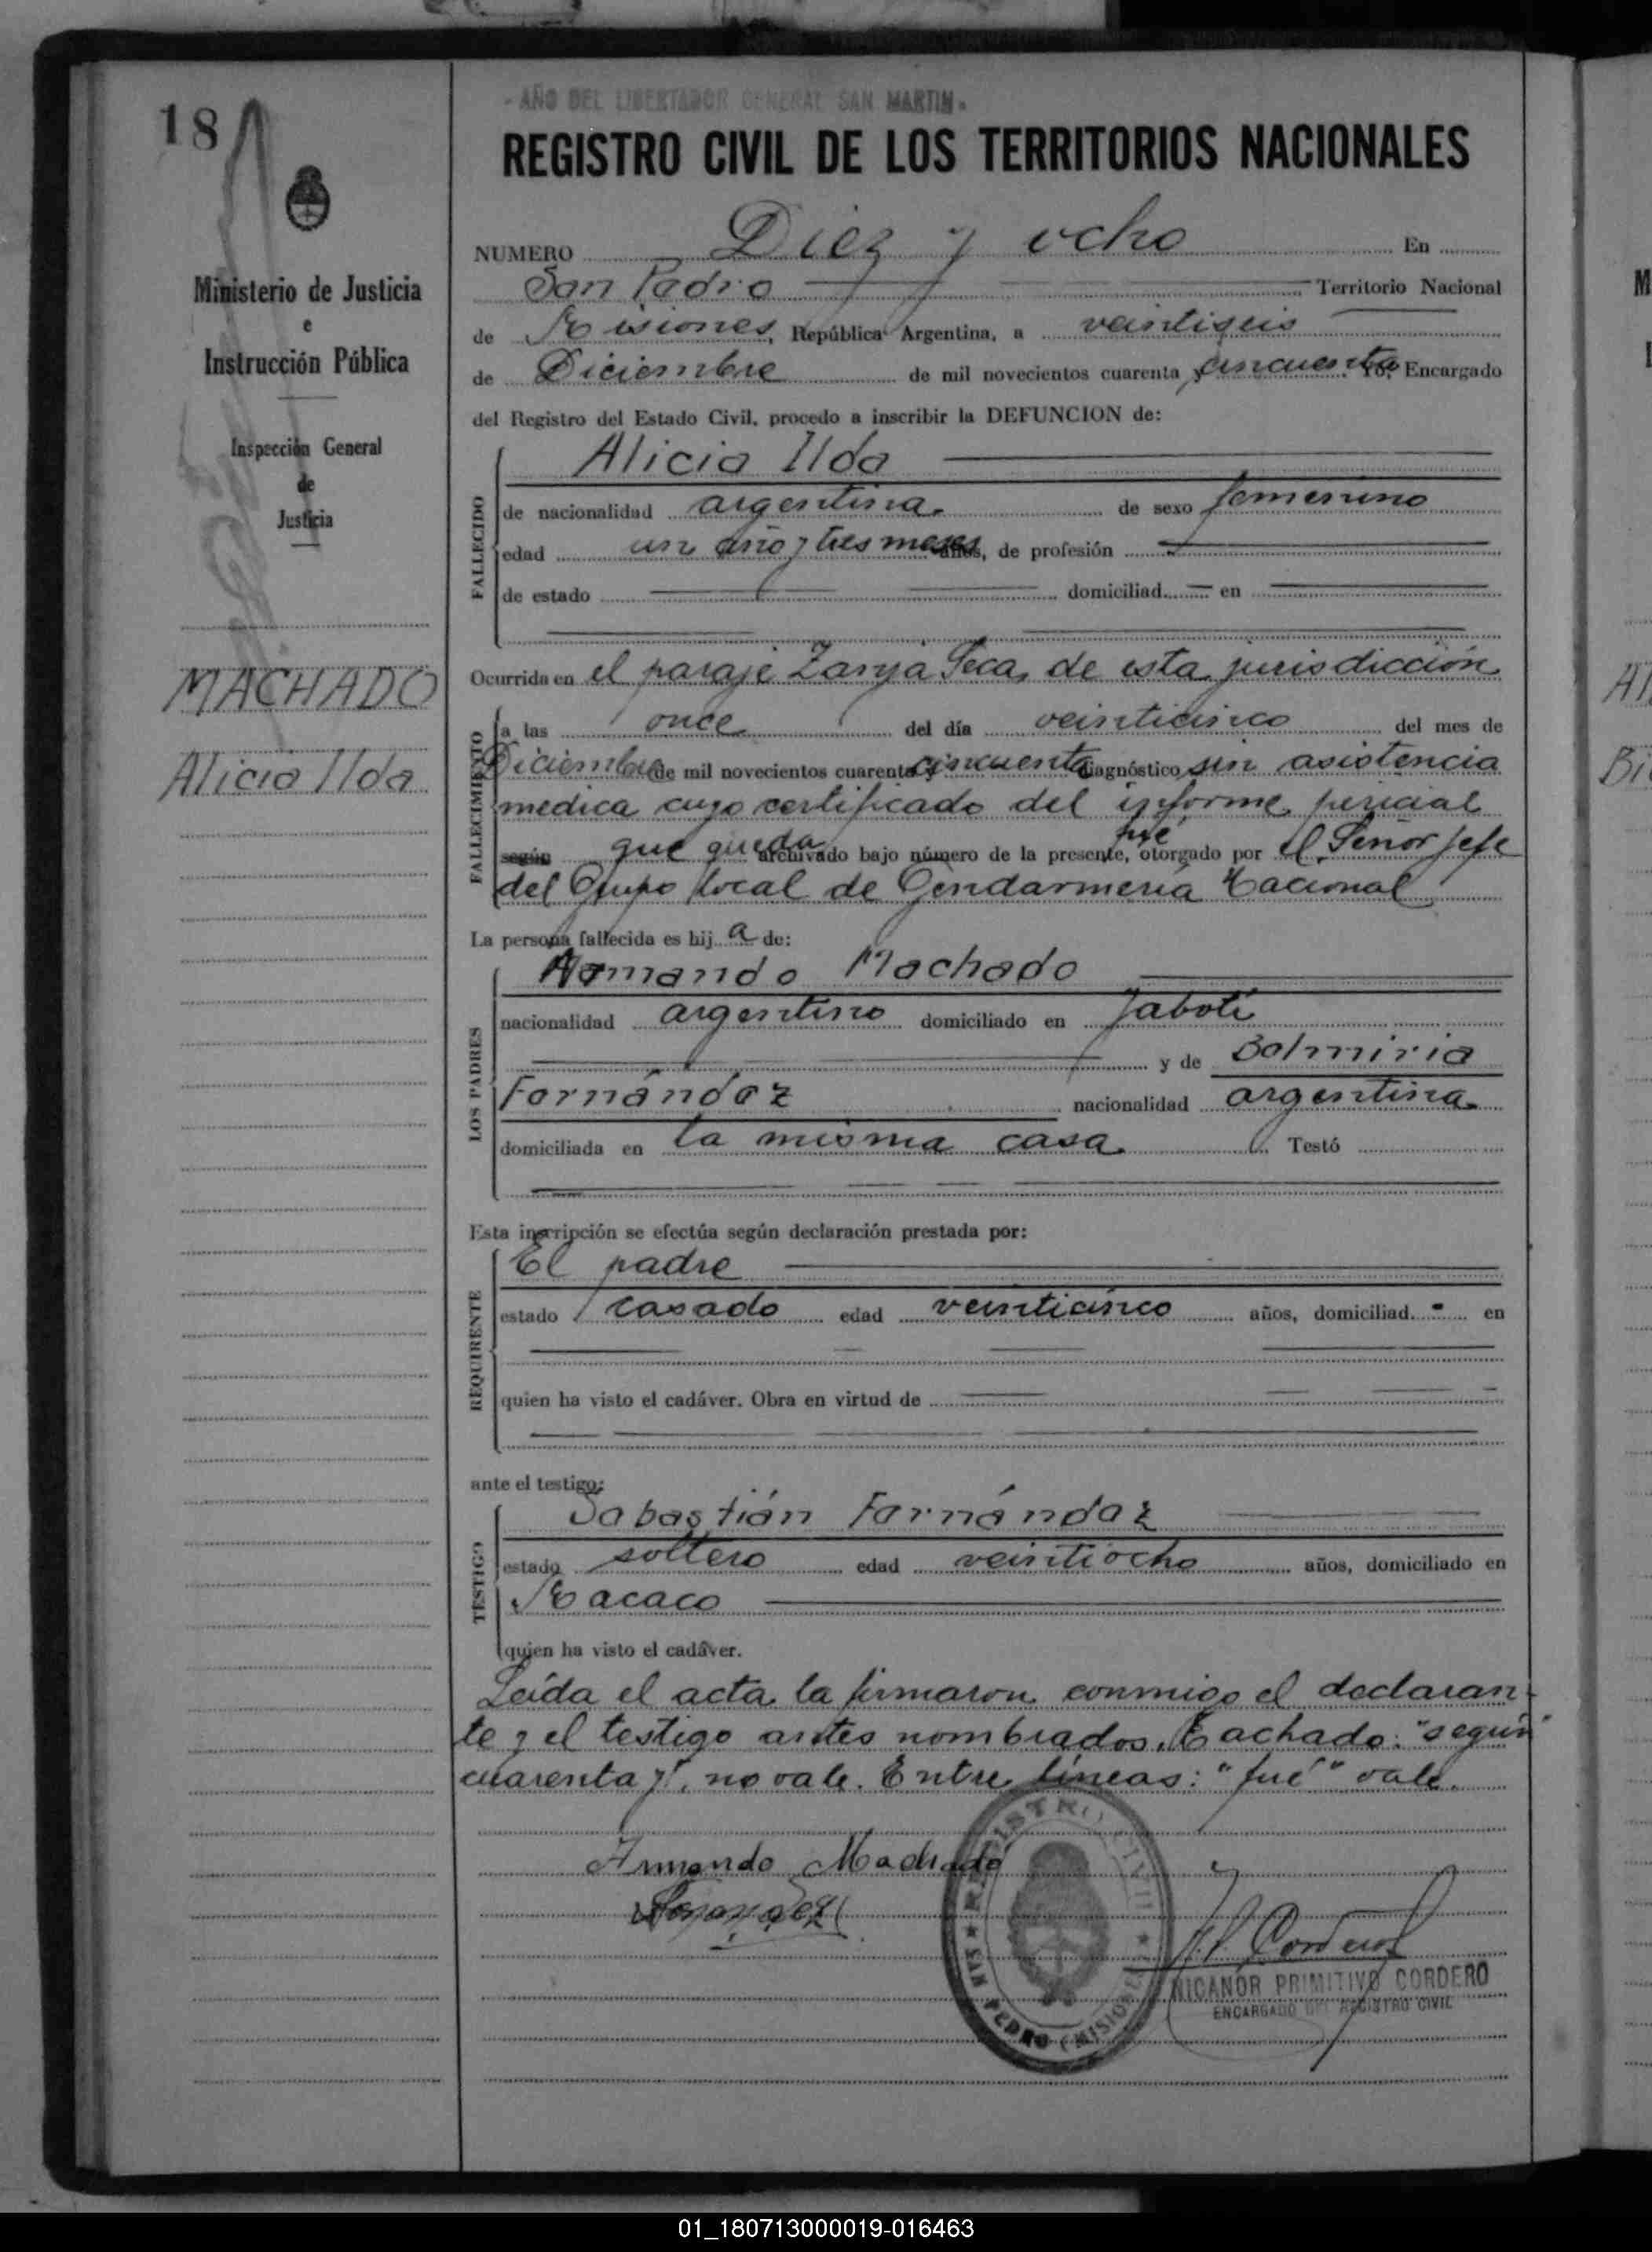 18
Ministerio de Justicia
e
Instrucción Pública
Inspección General
de
Justicia
MACHADO
Alicia Ilda
- AÑO DEL LIBERTADOR GENERAL SAN MARTIN -
REGISTRO CIVIL DE LOS TERRITORIOS NACIONALES
NUMERO Diez y ocho En
San Pedro Territorio Nacional
de Misiones, República Argentina, a veintiseis
de Diciembre de mil novecientos cuarenta y cincuenta Yo, Encargado
del Registro del Estado Civil, procedo a inscribir la DEFUNCION de:
FALLECIDO
Alicia Ilda
de nacionalidad argentina. de sexo femenino
edad un año y tres meses años, de profesión
de estado domiciliad en
Ocurrida en el paraje Zanja Seca, de esta jurisdicción
FALLECIMIENTO
a las once del día veinticinco del mes de
Diciembre de mil novecientos cuarenta y cincuenta diagnóstico sin asistencia
medica cuyo certificado del informe pericial
según que queda archivado bajo número de la presente, fué otorgado por el Señor Jefe
del Grupo local de Gendarmería Nacional
La persona fallecida es hij a de:
LOS PADRES
Armando Machado
nacionalidad argentino domiciliado en Jabotí
y de Balmiria
Fernández nacionalidad argentina.
domiciliada en la misma casa. Testó
Esta inscripción se efectúa según declaración prestada por:
REQUIRENTE
El padre
estado casado edad veinticinco años, domiciliad en
quien ha visto el cadáver. Obra en virtud de
ante el testigo:
TESTIGO
Sebastián Fernández
estado soltero edad veintiocho años, domiciliado en
Macaco
quien ha visto el cadáver.
Leída el acta la firmaron conmigo el declaran-
te y el testigo antes nombrados. Tachado: "según"
cuarenta y", no vale. Entre líneas: "fué" vale.
Armando Machado
REGISTRO CIVIL
SAN PEDRO (MISIONES)
NICANOR PRIMITIVO CORDERO
ENCARGADO DEL REGISTRO CIVIL
01_180713000019-016463